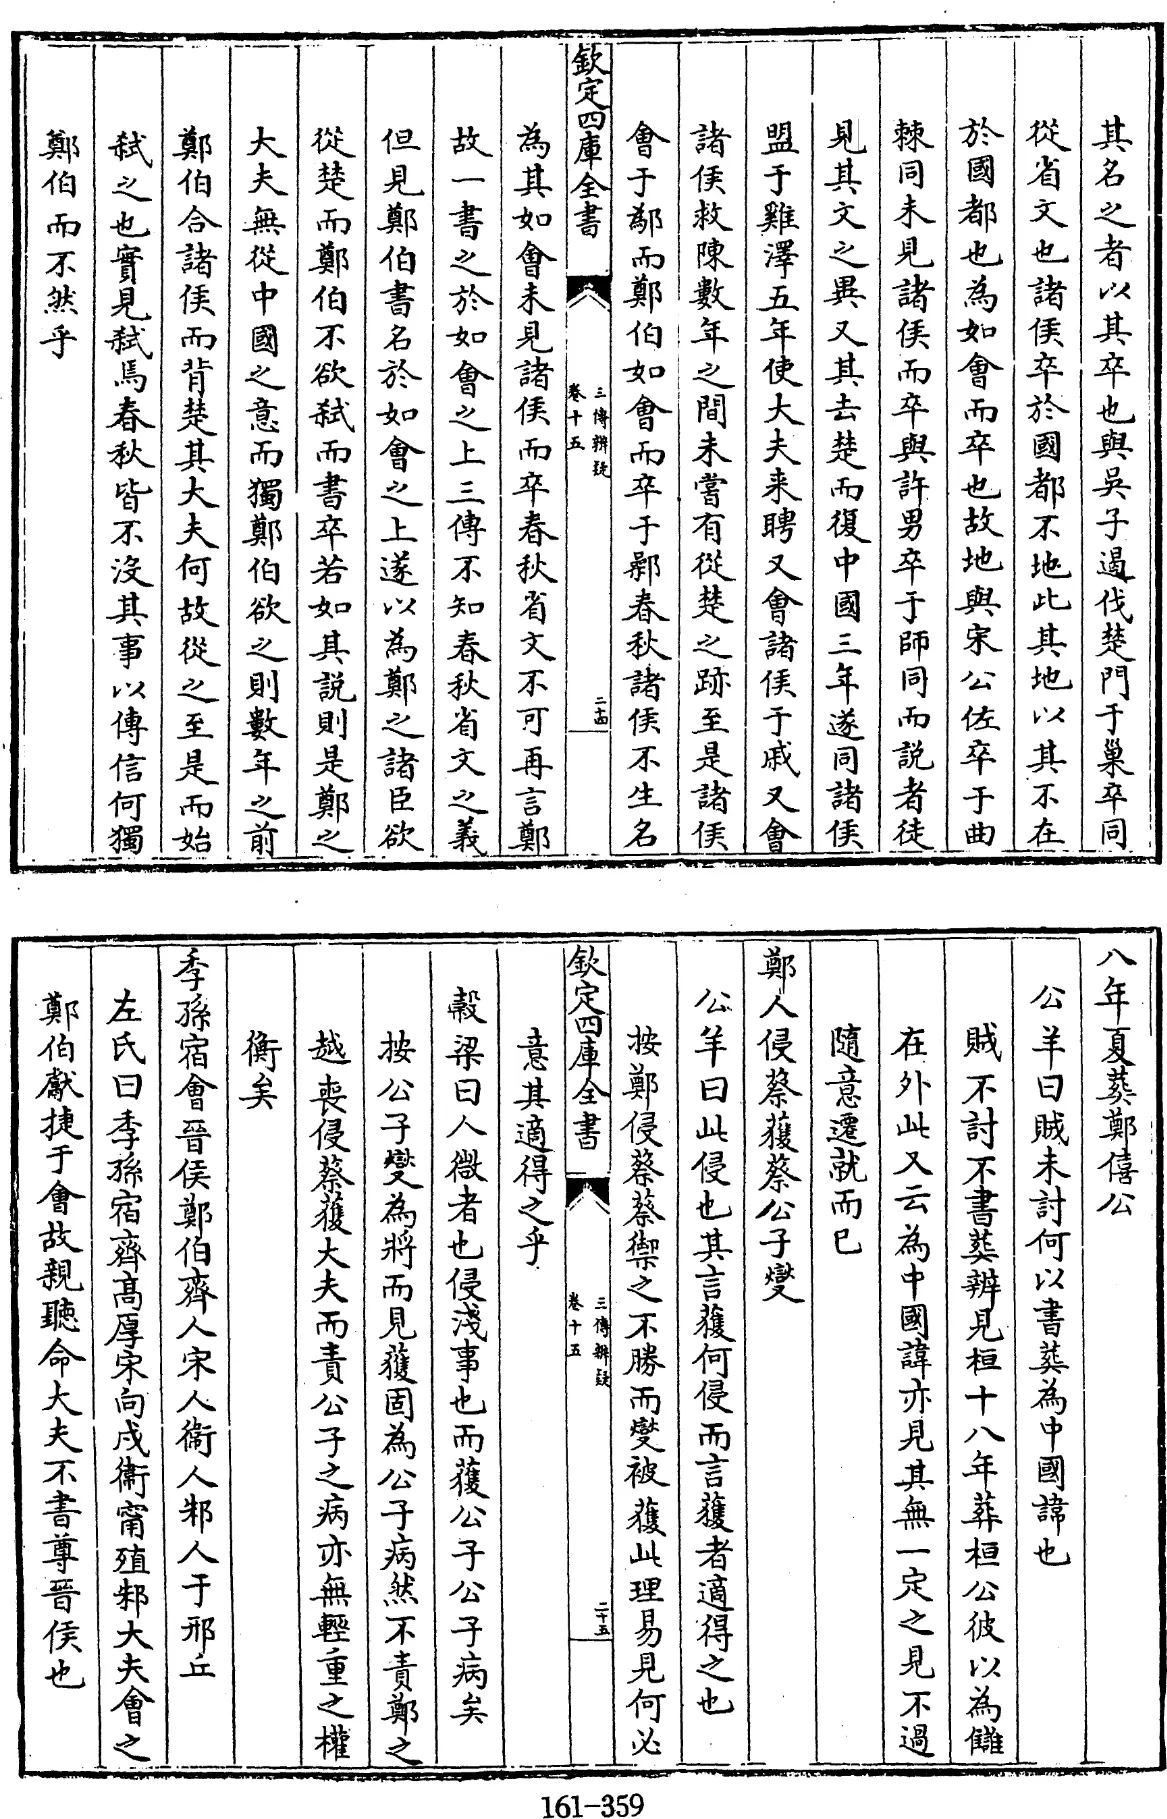 其名之者以其卒也與吳子遏伐楚門于巢卒同
從省文也諸侯卒於國都不地此其地以其不在
於國都也為如會而卒也故地與宋公佐卒于曲
棘同未見諸侯而卒與許男卒于師同而說者徒
見其文之異又其去楚而復中國三年遂同諸侯
盟于雞澤五年使大夫來聘又會諸侯于戚又會
諸侯救陳數年之間未嘗有從楚之跡至是諸侯
會于鄬而鄭伯如會而卒于鄵春秋諸侯不生名
欽定四庫全書
三傳辨疑
卷十五
二十四
為其如會未見諸侯而卒春秋省文不可再言鄭
故一書之於如會之上三傳不知春秋省文之義
但見鄭伯書名於如會之上遂以為鄭之諸臣欲
從楚而鄭伯不欲弒而書卒若如其說則是鄭之
大夫無從中國之意而獨鄭伯欲之則數年之前
鄭伯合諸侯而背楚其大夫何故從之至是而始
弒之也實見弒焉春秋皆不沒其事以傳信何獨
鄭伯而不然乎
八年夏葬鄭僖公
公羊曰賊未討何以書葬為中國諱也
賊不討不書葬辨見桓十八年葬桓公彼以為讎
在外此又云為中國諱亦見其無一定之見不過
隨意遷就而已
鄭人侵蔡獲蔡公子燮
公羊曰此侵也其言獲何侵而言獲者適得之也
按鄭侵蔡蔡禦之不勝而燮被獲此理易見何必
欽定四庫全書
三傳辨疑
卷十五
二十五
意其適得之乎
穀梁曰人微者也侵淺事也而獲公子公子病矣
按公子燮為將而見獲固為公子病然不責鄭之
越喪侵蔡獲大夫而責公子之病亦無輕重之權
衡矣
季孫宿會晉侯鄭伯齊人宋人衛人邾人于邢丘
左氏曰季孫宿齊高厚宋向戌衛甯殖邾大夫會之
鄭伯獻捷于會故親聽命大夫不書尊晉侯也
161-359